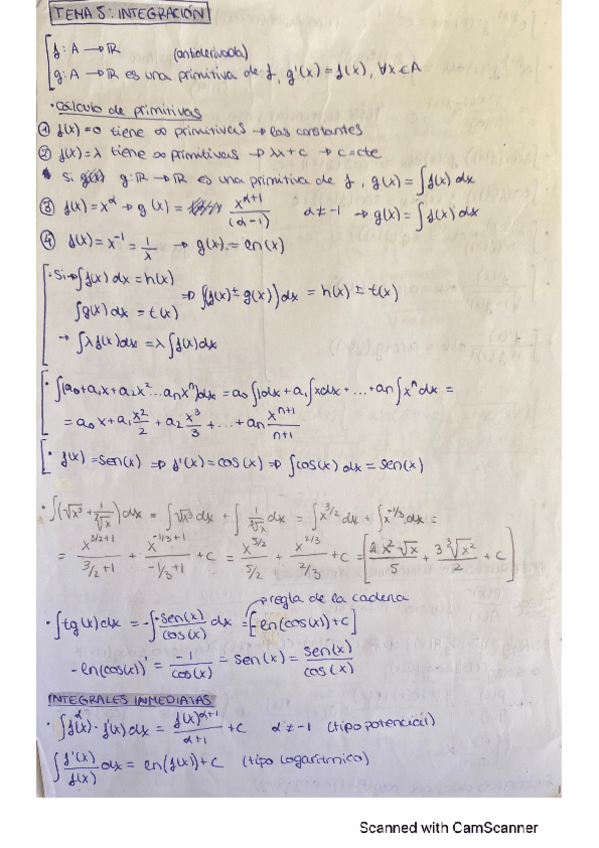 TEMA 5: INTEGRACIÓN
f: A → ℝ (antiderivada)
g: A → ℝ es una primitiva de f, g'(x) = f(x), ∀x ∈ A
· Cálculo de primitivas
① f(x)=0 tiene ∞ primitivas → las constantes
② f(x)=λ tiene ∞ primitivas → λx+c → c=cte
Si g: ℝ → ℝ es una primitiva de f, g(x) = ∫f(x)dx
③ f(x)=x^α → g(x) = x^(α+1)/(α-1) α ≠ -1 → g(x) = ∫f(x)dx
④ f(x) = x^-1 = 1/x → g(x) = ln(x)
· Si → ∫f(x)dx = h(x)
∫g(x)dx = t(x) ⇒ ∫(f(x) ± g(x))dx = h(x) ± t(x)
→ ∫λf(x)dx = λ∫f(x)dx
· ∫(a0+a1x+a2x²...anx^n)dx = a0∫1dx+a1∫xdx+...+an∫x^n dx =
= a0x+a1 x²/2 + a2 x³/3 + ... + an x^(n+1)/(n+1)
· f(x) = sen(x) ⇒ f'(x) = cos(x) ⇒ ∫cos(x)dx = sen(x)
· ∫(√x³ + 1/∛x)dx = ∫√x³ dx + ∫ 1/∛x dx = ∫x^(3/2) dx + ∫x^(-1/3) dx =
= x^(3/2+1)/(3/2+1) + x^(-1/3+1)/(-1/3+1) + c = x^(5/2)/(5/2) + x^(2/3)/(2/3) + c = [2x²√x/5 + 3∛x²/2 + c]
regla de la cadena
· ∫tg(x)dx = -∫-sen(x)/cos(x) dx = [-ln(cos(x))+c]
-ln(cos(x))' = -1/cos(x) = sen(x) = sen(x)/cos(x)
INTEGRALES INMEDIATAS
· ∫f(x)^α · f'(x)dx = f(x)^(α+1)/(α+1) + c α ≠ -1 (tipo potencial)
∫f'(x)/f(x) dx = ln(f(x))+c (tipo logarítmico)
Scanned with CamScanner